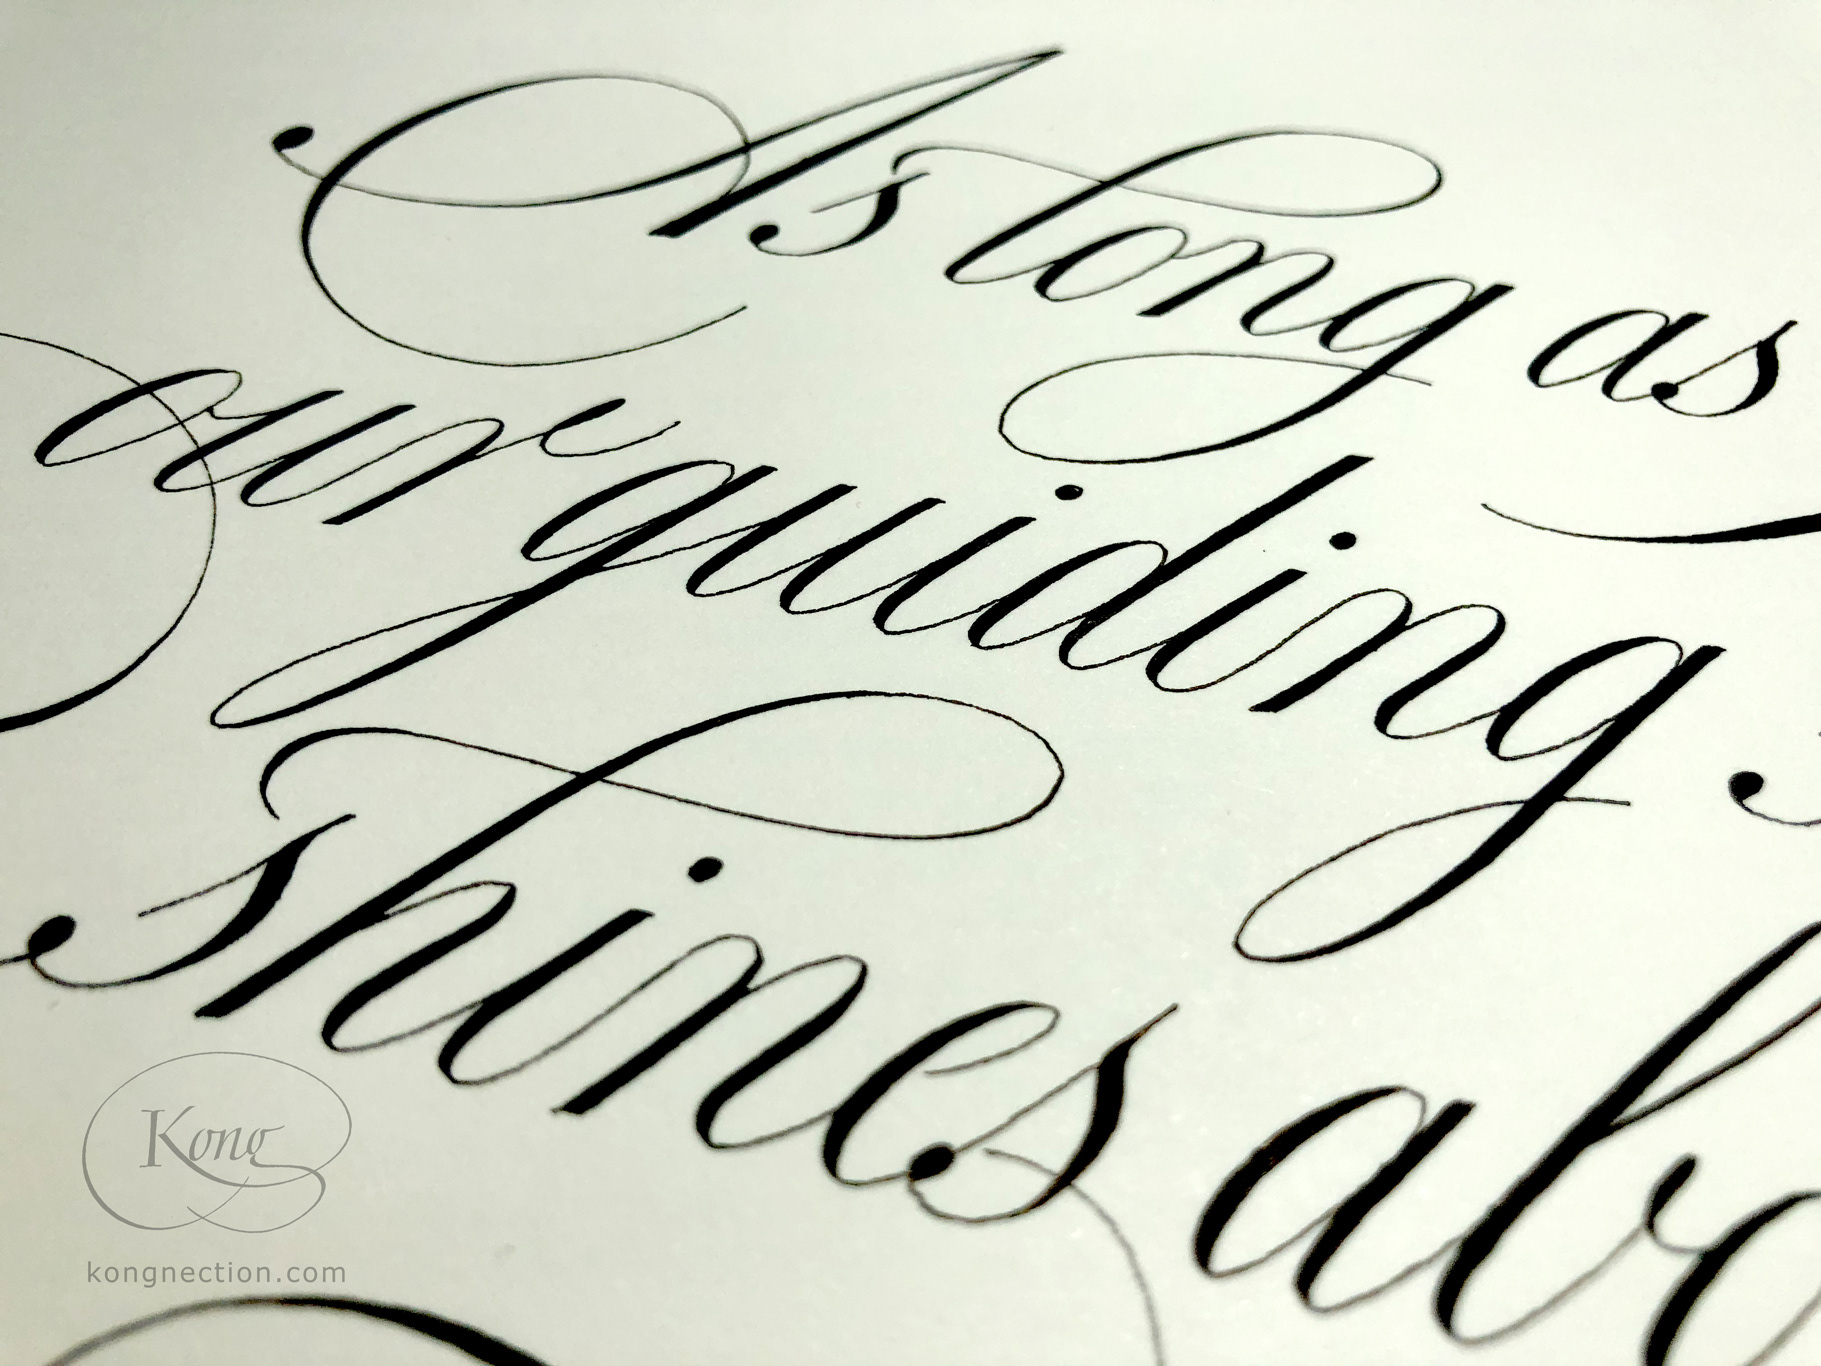 As long as
our guiding
shines abo
Kong
kongnection.com